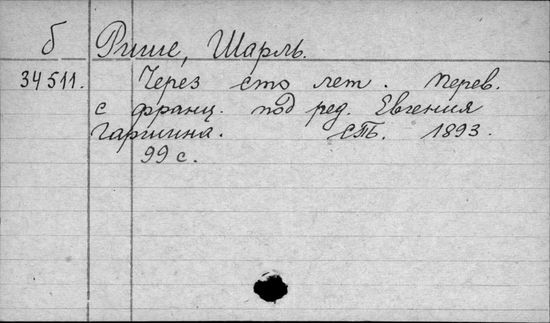 б Рише, Шарль.
34511. Через сто лет. перев.
с франц. под ред. Евгения
Гаршина. СПБ. 1893.
99 с.